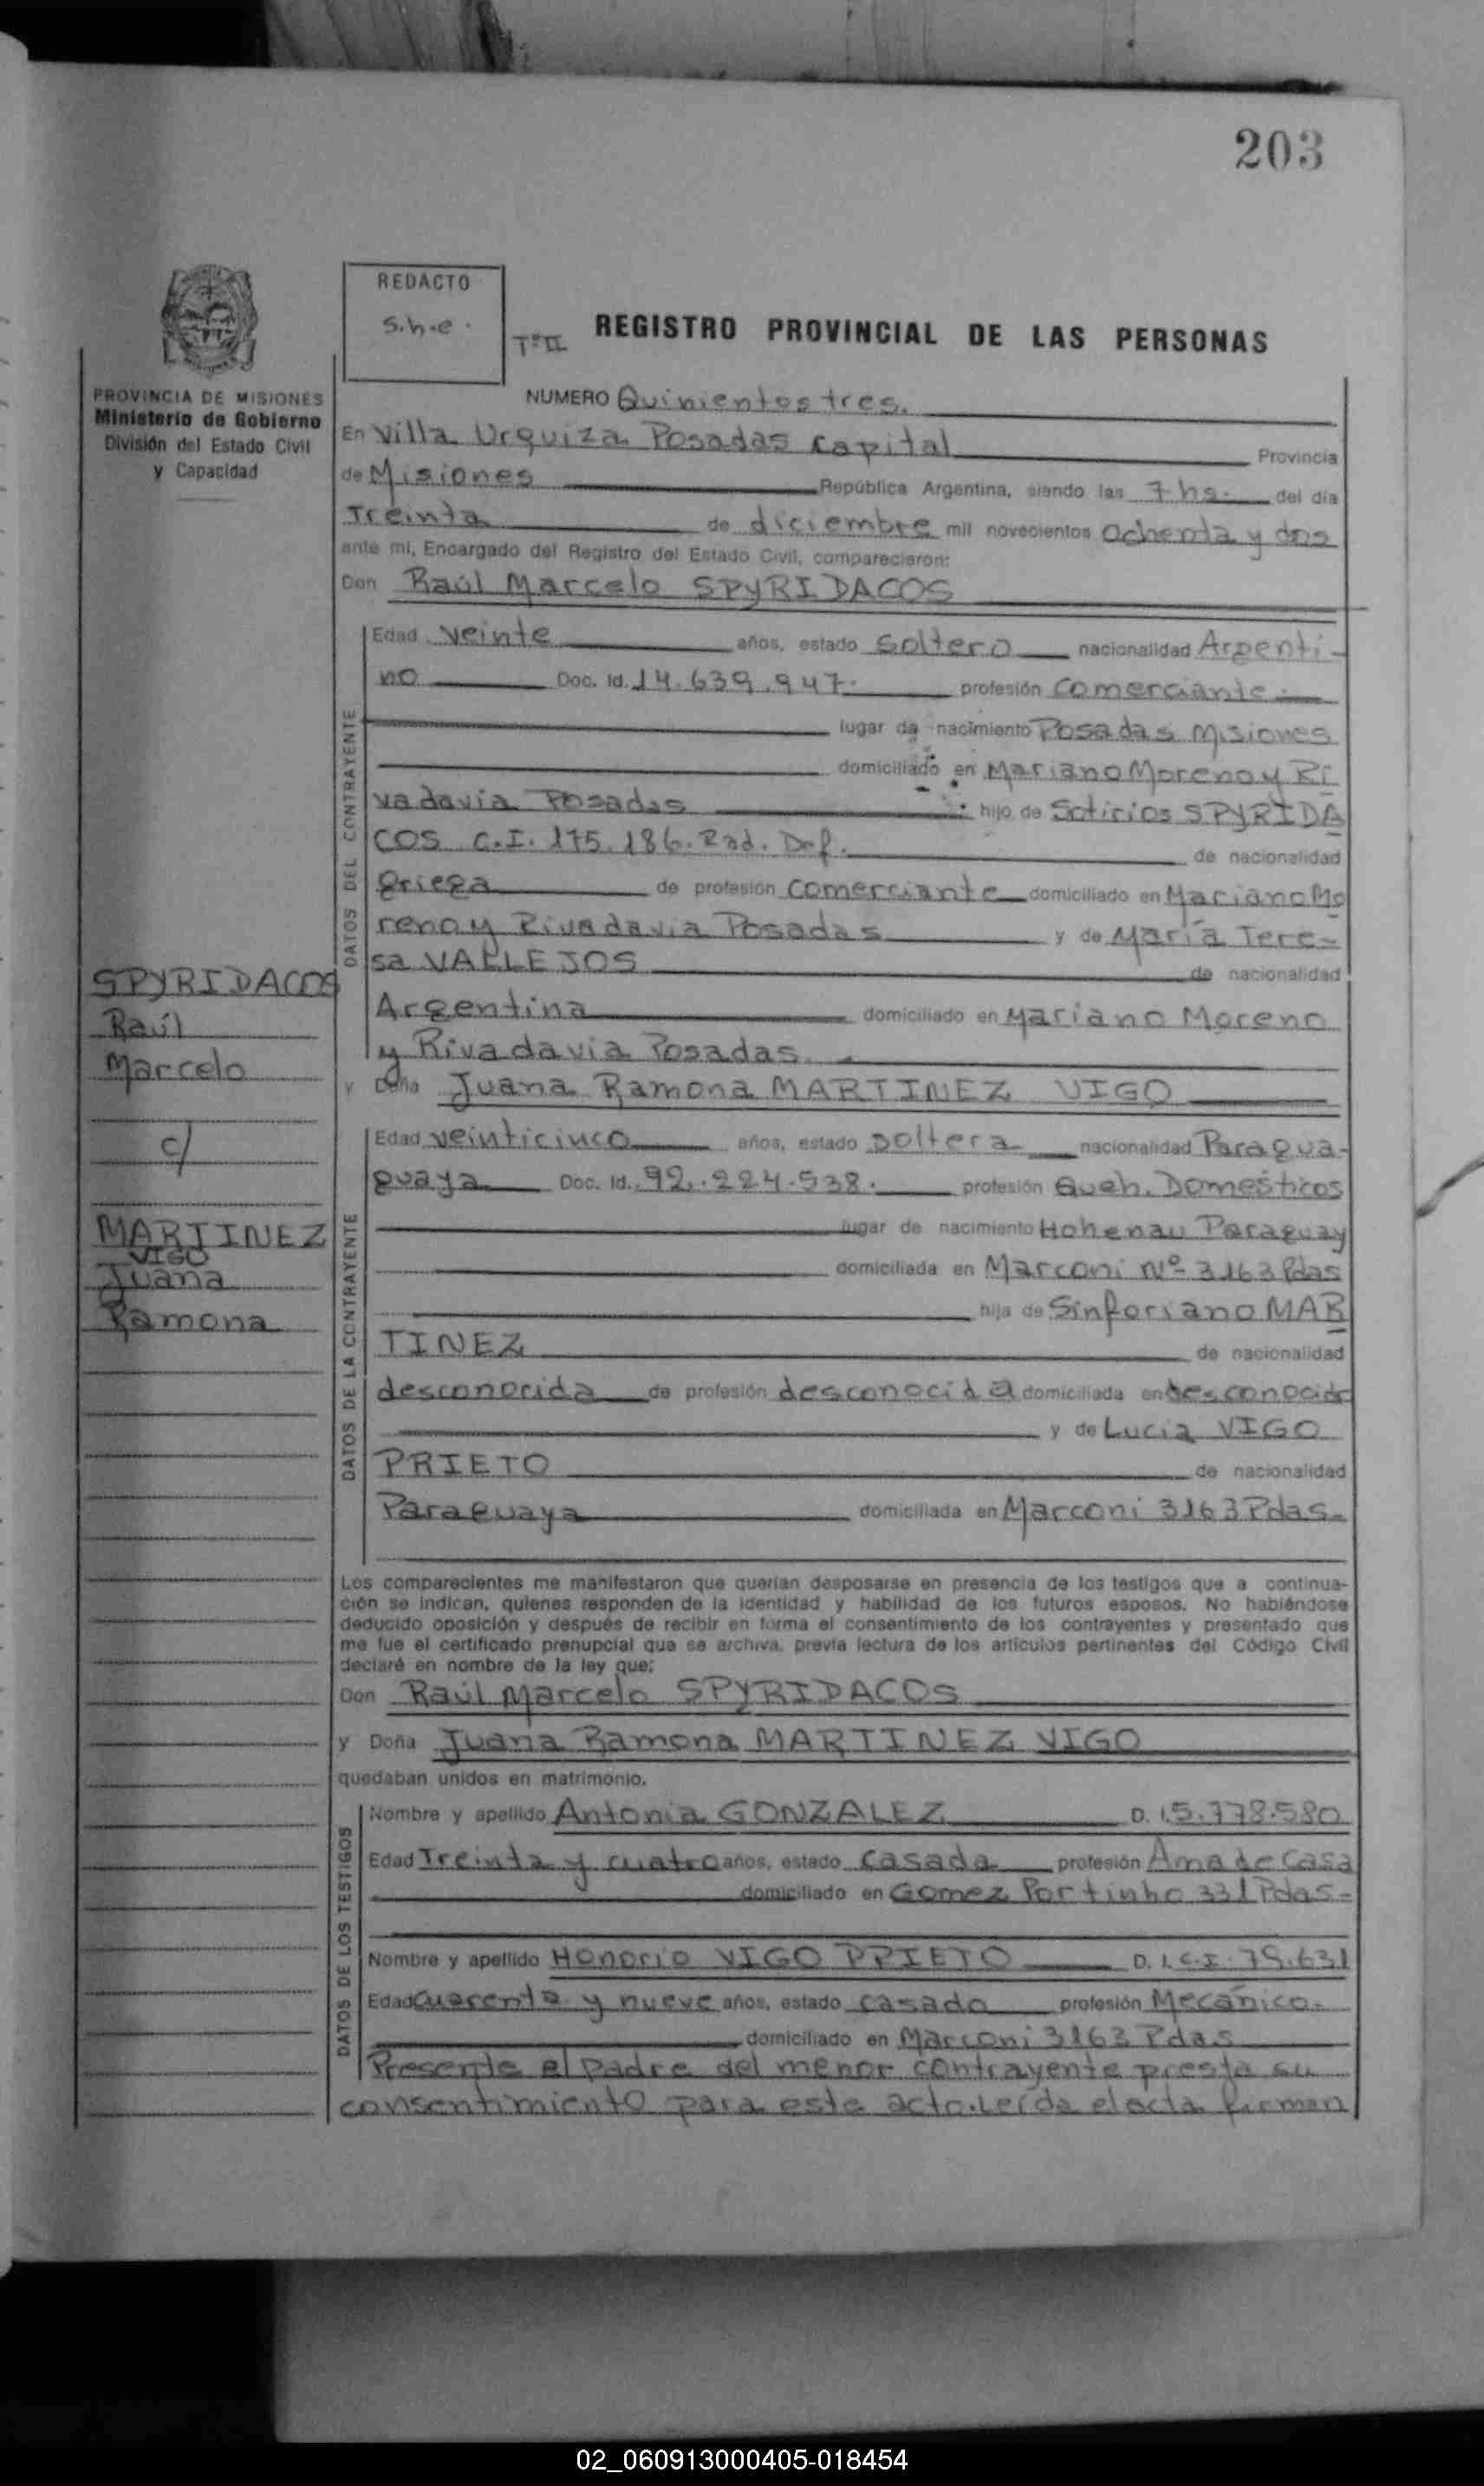 203
REDACTO
s.h.e.
Tº II
REGISTRO PROVINCIAL DE LAS PERSONAS
PROVINCIA DE MISIONES
Ministerio de Gobierno
División del Estado Civil
y Capacidad
NUMERO Quinientos tres.
En Villa Urquiza Posadas Capital Provincia
de Misiones República Argentina, siendo las 7 hs. del día
Treinta de diciembre mil novecientos ochenta y dos
ante mí, Encargado del Registro del Estado Civil, comparecieron:
Don Raúl Marcelo SPYRIDACOS
DATOS DEL CONTRAYENTE
Edad veinte años, estado soltero nacionalidad Argenti-
no Doc. Id. 14.639.947. profesión Comerciante.
lugar de nacimiento Posadas Misiones
domiciliado en Mariano Moreno y Ri
vadavia Posadas hijo de Sotirios SPYRIDA
COS C.I. 175.186. Rad. Def. de nacionalidad
griega de profesión Comerciante domiciliado en Mariano Mo
reno y Rivadavia Posadas y de María Tere-
sa VALLEJOS de nacionalidad
Argentina domiciliado en Mariano Moreno
y Rivadavia Posadas.
SPYRIDACOS
Raúl
Marcelo
c/
MARTINEZ
VIGO
Juana
Ramona
y Doña Juana Ramona MARTINEZ VIGO
DATOS DE LA CONTRAYENTE
Edad veinticinco años, estado soltera nacionalidad Paragua-
guaya Doc. Id. 92.224.538. profesión Queh. Domésticos
lugar de nacimiento Hohenau Paraguay
domiciliada en Marconi Nº 3163 Pdas
hija de Sinforiano MAR
TINEZ de nacionalidad
desconocida de profesión desconocida domiciliada en desconocido
y de Lucia VIGO
PRIETO de nacionalidad
Paraguaya domiciliada en Marconi 3163 Pdas.
Los comparecientes me manifestaron que querían desposarse en presencia de los testigos que a continua-
ción se indican, quienes responden de la identidad y habilidad de los futuros esposos. No habiéndose
deducido oposición y después de recibir en forma el consentimiento de los contrayentes y presentado que
me fue el certificado prenupcial que se archiva, previa lectura de los artículos pertinentes del Código Civil
declaré en nombre de la ley que:
Don Raúl Marcelo SPYRIDACOS
y Doña Juana Ramona MARTINEZ VIGO
quedaban unidos en matrimonio.
DATOS DE LOS TESTIGOS
Nombre y apellido Antonia GONZALEZ D. I. 5.778.580
Edad Treinta y cuatro años, estado Casada profesión Ama de Casa
domiciliado en Gomez Portinho 331 Pdas-
Nombre y apellido Honorio VIGO PRIETO D. I. C.I. 79.631
Edad Cuarenta y nueve años, estado casado profesión Mecánico.
domiciliado en Marconi 3163 Pdas
Presente el padre del menor contrayente presta su
consentimiento para este acto. Leída el acta firman
02_060913000405-018454